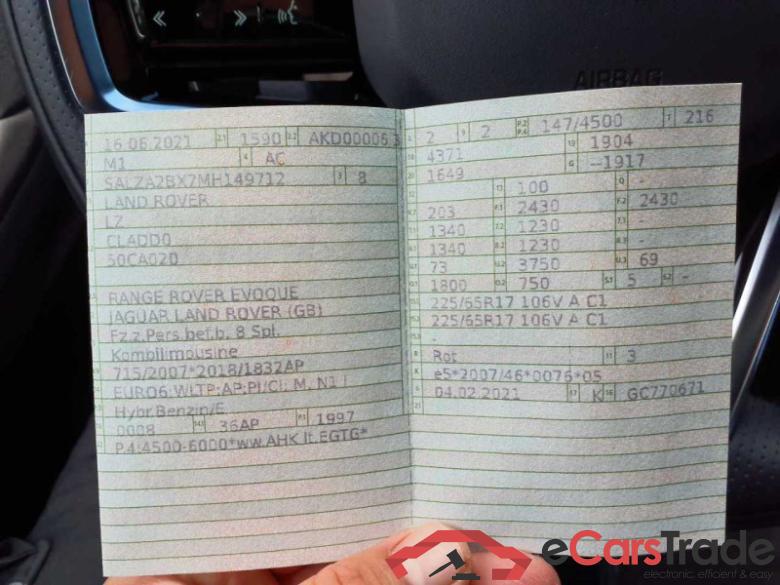 AIRBAG
16.06.2021 2.1 1590 2.2 AKD00006 3
M1 4 AC
SALZA2BX7MH149712 3 8
LAND ROVER
LZ
CLADD0
50CA020
RANGE ROVER EVOQUE
JAGUAR LAND ROVER (GB)
Fz.z.Pers.bef.b. 8 Spl.
Kombilimousine
715/2007*2018/1832AP
EURO6;WLTP;AP;PI/CI; M, N1 I
Hybr.Benzin/E
0008 14.1 36AP P.1 1997
P.4:4500-6000*ww.AHK lt.EGTG*
L 2 9 2 P.2 P.4 147/4500 T 216
18 4371 19 1904
20 1649 G --1917
13 100 Q -
V.7 203 F.1 2430 F.2 2430
7.1 1340 7.2 1230 7.3 -
8.1 1340 8.2 1230 8.3 -
U.1 73 U.2 3750 U.3 69
O.1 1800 O.2 750 S.1 5 S.2 -
225/65R17 106V A C1
225/65R17 106V A C1
-
R Rot 11 3
K e5*2007/46*0076*05
6 04.02.2021 17 K 16 GC770671
21
eCarsTrade
electronic, efficient & easy